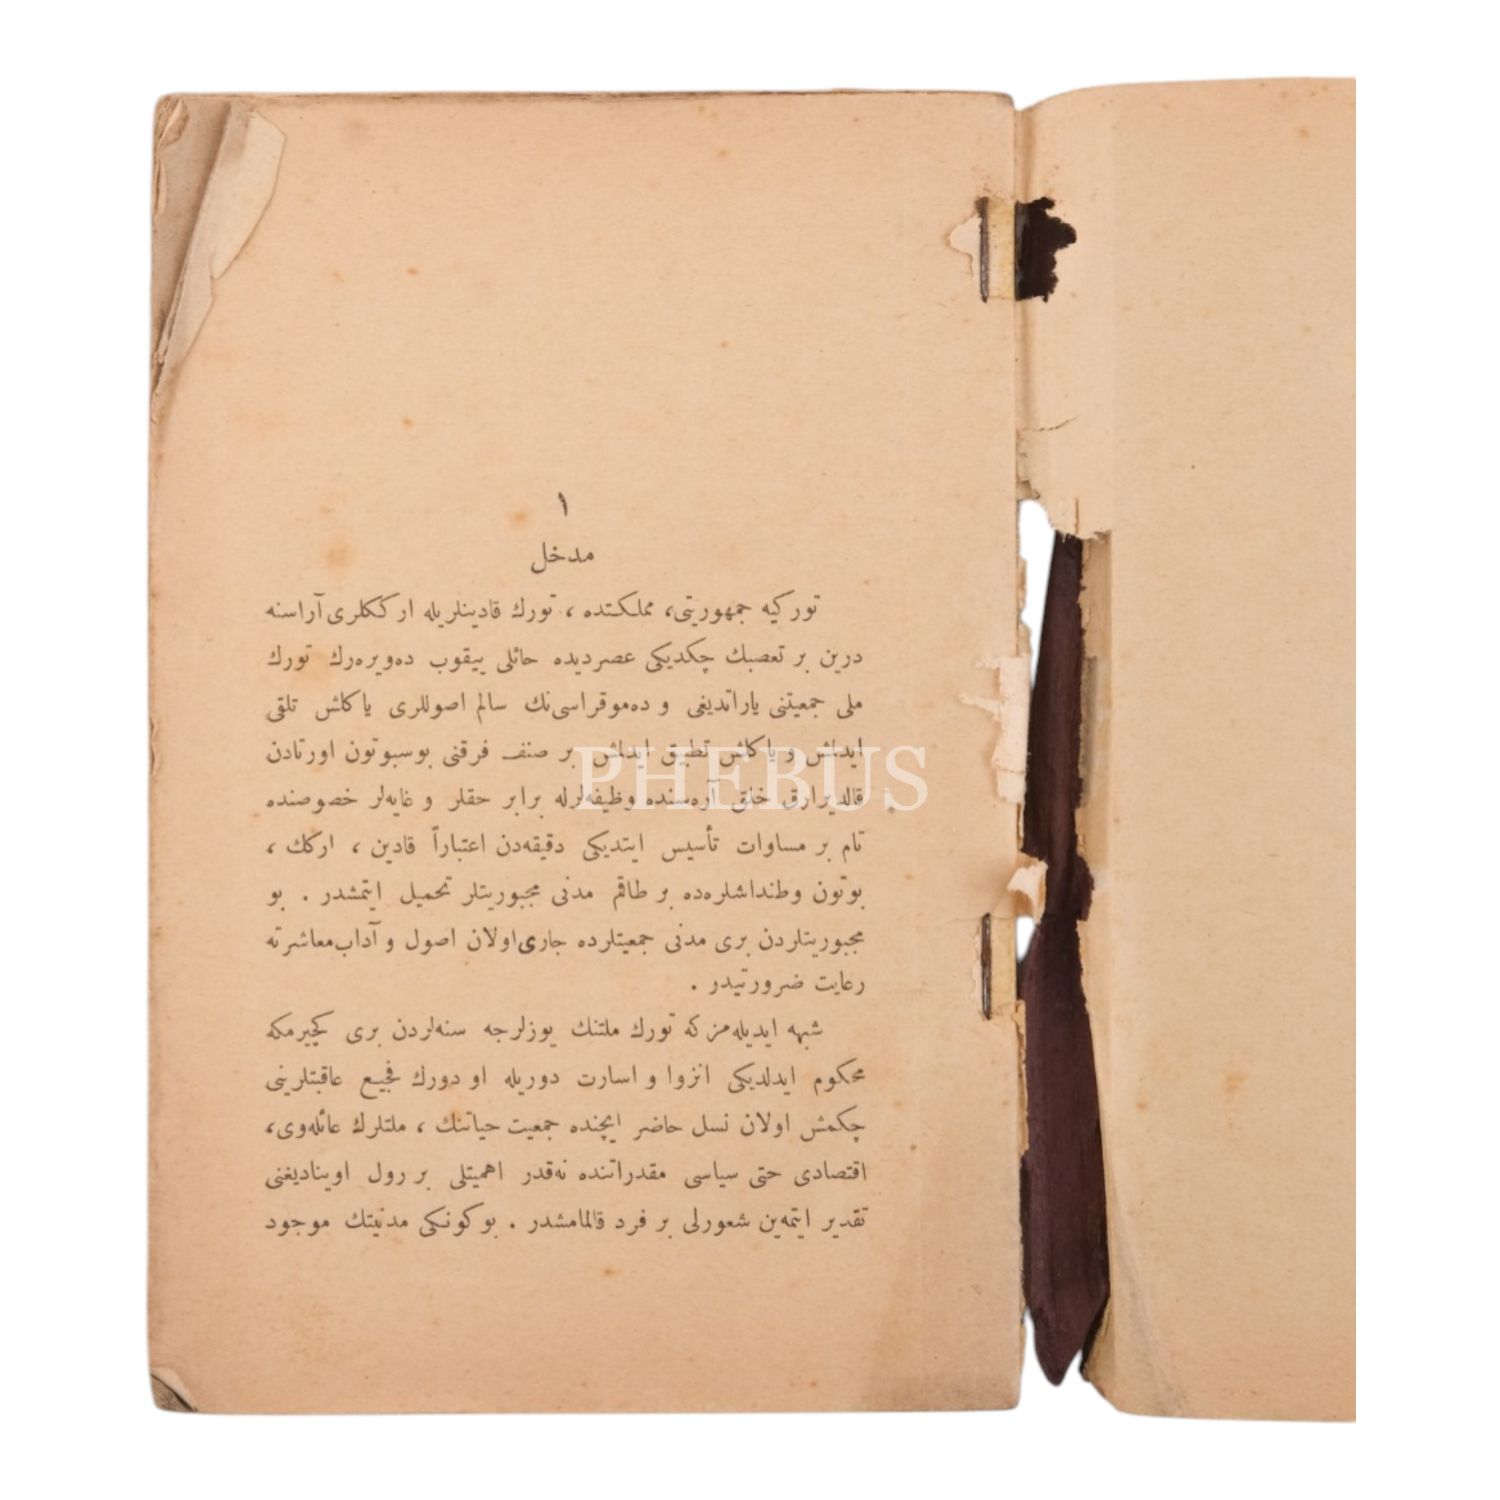 ١
مدخل
توركيه جمهوريتى، مملكتده ، تورك قادينلريله اركـكلرى آراسنه
درين بر تعصبك چكديكى عصرديده حائلى ييقوب ده‌ويره‌رك تورك
ملى جمعيتنى ياراتديغى و ده‌موقراسى‌نك سالم اصوللرى ياكلش تلقى
ايدلش و ياكلش تطبيق ايدلش بر صنف فرقنى بوسبوتون اورتادن
قالديرارق خلق آره‌سنده وظيفه‌لرله برابر حقلر و غايه‌لر خصوصنده
تام بر مساوات تأسيس ايتديكى دقيقه‌دن اعتباراً قادين ، اركك ،
بوتون وطنداشلره‌ده بر طاقم مدنى مجبوريتلر تحميل ايتمشدر . بو
مجبوريتلردن برى مدنى جمعيتلرده جارى‌اولان اصول و آداب‌معاشرته
رعايت ضرورتيدر .
شبهه ايديله‌مزكه تورك ملتنك يوزلرجه سنه‌لردن برى كچيرمكه
محكوم ايدلديكى انزوا و اسارت دوريله او دورك فجيع عاقبتلرينى
چكمش اولان نسل حاضر ايچنده جمعيت حياتنك ، ملتلرك عائله‌وى،
اقتصادى حتى سياسى مقدراتنده نه‌قدر اهميتلى بر رول اويناديغنى
تقدير ايتمه‌ين شعورلى بر فرد قالمامشدر . بوكونكى مدنيتك موجود
PHEBUS